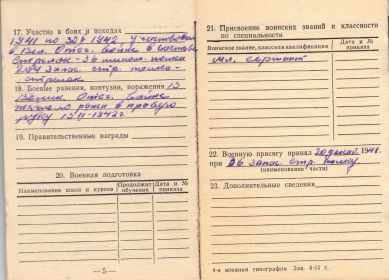 17. Участие в боях и походах
1941 по 30 V 1942, участвовал
в Вел. Отеч. войне в составе
стрелок - 36 полка
204 запас. стр. полка -
стрелок
18. Боевые ранения, контузии, поражения В
Велик. Отеч. войне
тяжело ранен в правую
руку 13/II-1942 г.
19. Правительственные награды
20. Военная подготовка
Наименование школ и курсов
Продолжит. обучения
Дата и № приказа
— 5 —
21. Присвоение воинских званий и классности
по специальности
Воинское звание, классная квалификация
Дата и № приказа
мл. сержант
22. Военную присягу принял 20 1941 г.
при 36 запас. стр. полку
(наименование части)
23. Дополнительные сведения
4-я военная типография. Зак. 6-51 г.